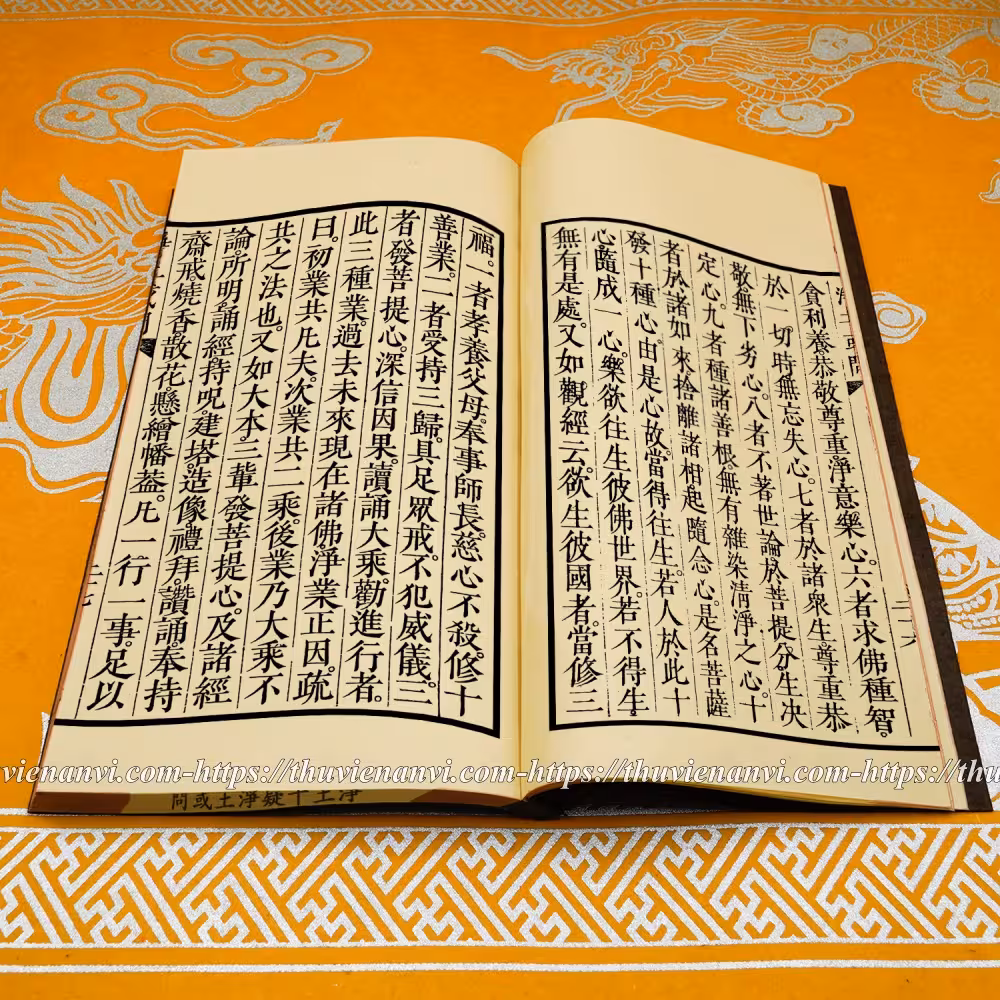 貪利養恭敬尊重淨意樂心。六者求佛種智。
於一切時無忘失心。七者於諸衆生尊重恭
敬無下劣心。八者不著世論。於菩提分生决
定心。九者種諸善根。無有雜染清淨之心。十
者於諸如來。捨離諸相。起隨念心。是名菩薩
發十種心。由是心故。當得往生。若人於此十
心。隨成一心。樂欲往生彼佛世界。若不得生。
無有是處。又如觀經云。欲生彼國者。當修三
福。一者孝養父母。奉事師長。慈心不殺。修十
善業。二者受持三歸。具足眾戒。不犯威儀。三
者發菩提心。深信因果。讀誦大乘。勸進行者。
此三種業。過去未來現在諸佛淨業正因。疏
曰。初業共凡夫。次業共二乘。後業乃大乘不
共之法也。又如大本。三輩發菩提心。及諸經
論。所明。誦經。持呪。建塔。造像。禮拜。讚誦。奉持
齋戒。燒香。散花。懸繒幡葢。凡一行一事。足以
淨土十疑淨土或問
vienanvi.com-https://thuvienanvi.com-https://thuvienanvi.com-https://thu